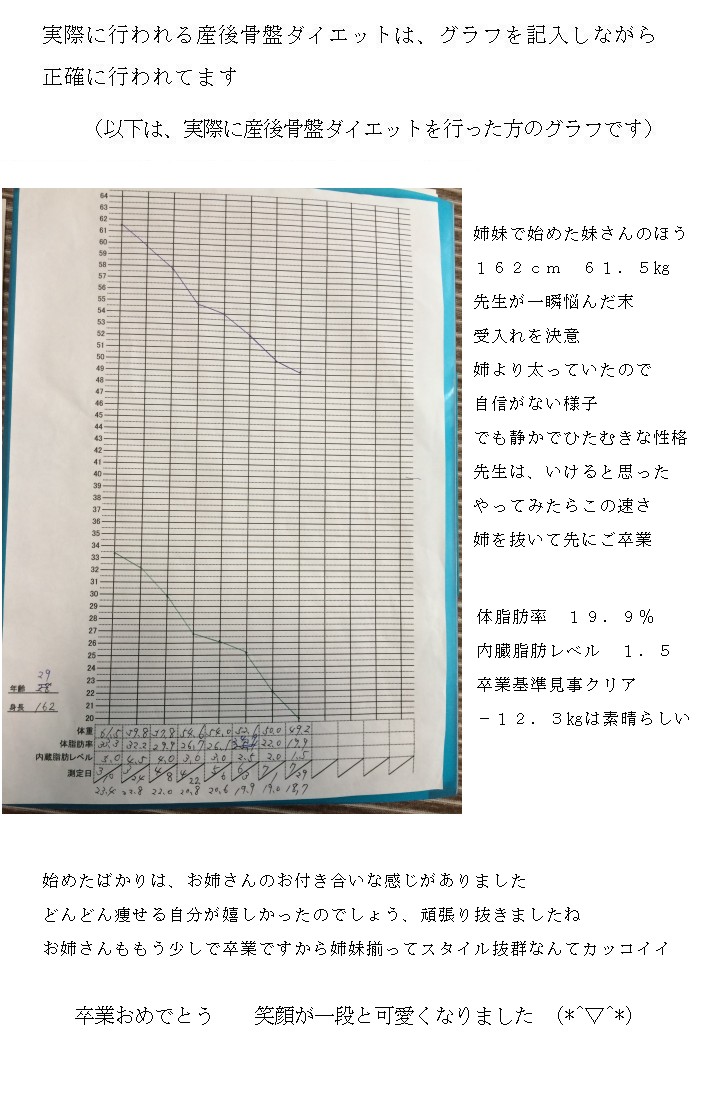 実際に行われる産後骨盤ダイエットは、グラフを記入しながら
正確に行われてます
（以下は、実際に産後骨盤ダイエットを行った方のグラフです）
64
63
62
61
60
59
58
57
56
55
54
53
52
51
50
49
48
47
46
45
44
43
42
41
40
39
38
37
36
35
34
33
32
31
30
29
28
27
26
25
24
23
22
21
20
29
年齢 28
身長 162
体重 61.5 59.8 57.8 54.6 54.0 52.1 50.0 49.2
体脂肪率 32.2 29.9 26.7 26.1 22.0 19.9
内蔵脂肪レベル 5.0 4.5 4.0 3.0 3.0 2.5 2.0 1.5
測定日
23.4 22.8 22.0 20.8 20.6 19.9 19.0 18.7
姉妹で始めた妹さんのほう
１６２ｃｍ　６１．５㎏
先生が一瞬悩んだ末
受入れを決意
姉より太っていたので
自信がない様子
でも静かでひたむきな性格
先生は、いけると思った
やってみたらこの速さ
姉を抜いて先にご卒業
体脂肪率　１９．９％
内臓脂肪レベル　１．５
卒業基準見事クリア
－１２．３㎏は素晴らしい
始めたばかりは、お姉さんのお付き合いな感じがありました
どんどん痩せる自分が嬉しかったのでしょう、頑張り抜きましたね
お姉さんももう少しで卒業ですから姉妹揃ってスタイル抜群なんてカッコイイ
卒業おめでとう　　笑顔が一段と可愛くなりました　(*^▽^*)